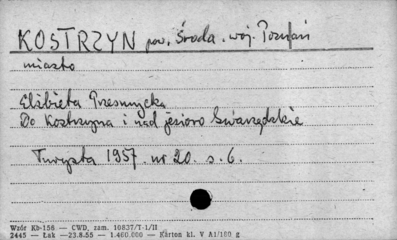 KOSTRZYN pow. Środa. woj. Poznań
miasto
Elżbieta Przesmycka
Do Kostrzyna i nad jezioro Swarzędzkie
Turysta 1957. nr 20. s. 6.
Wzór Kb-156 — CWD, zam. 10837/T-1/II
2445 — Łak —23.8.55 — 1.400.000 — Karton kl. V A1/160 g